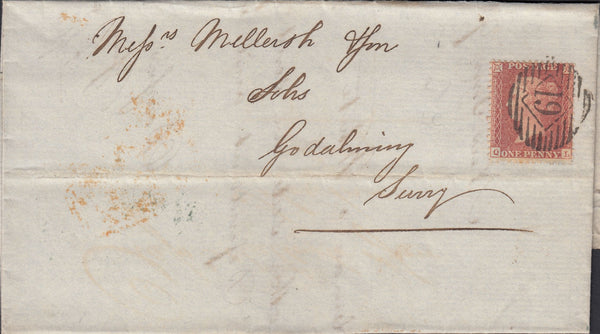 Mess^rs Mellersh & Son
Solrs
Godalming
Surry
POSTAGE
ONE PENNY
19